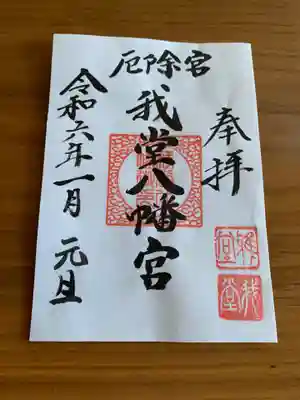 奉拝
厄除宮
我堂八幡宮
令和六年一月元旦
我堂